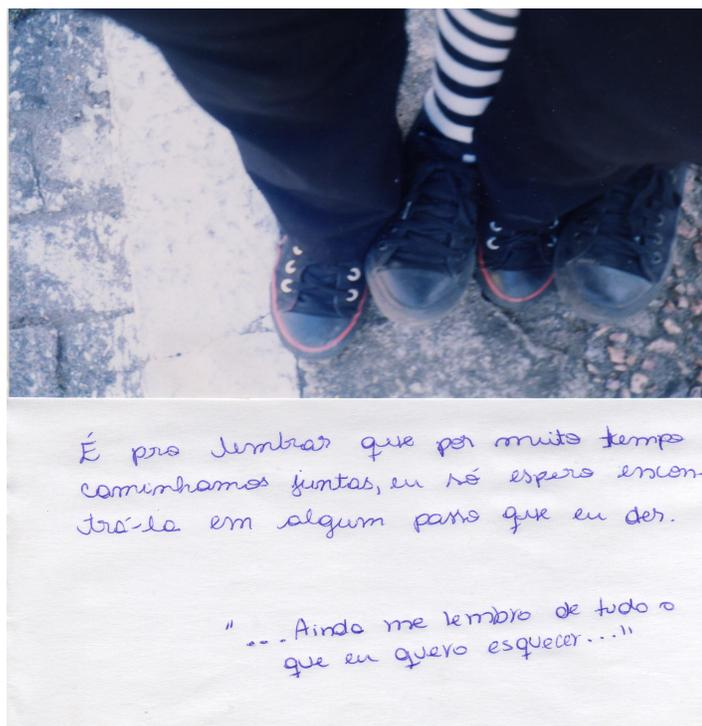 É pra lembrar que por muito tempo
caminhamos juntas, eu só espero encon-
trá-la em algum passo que eu der.
"...Ainda me lembro de tudo o
que eu quero esquecer..."